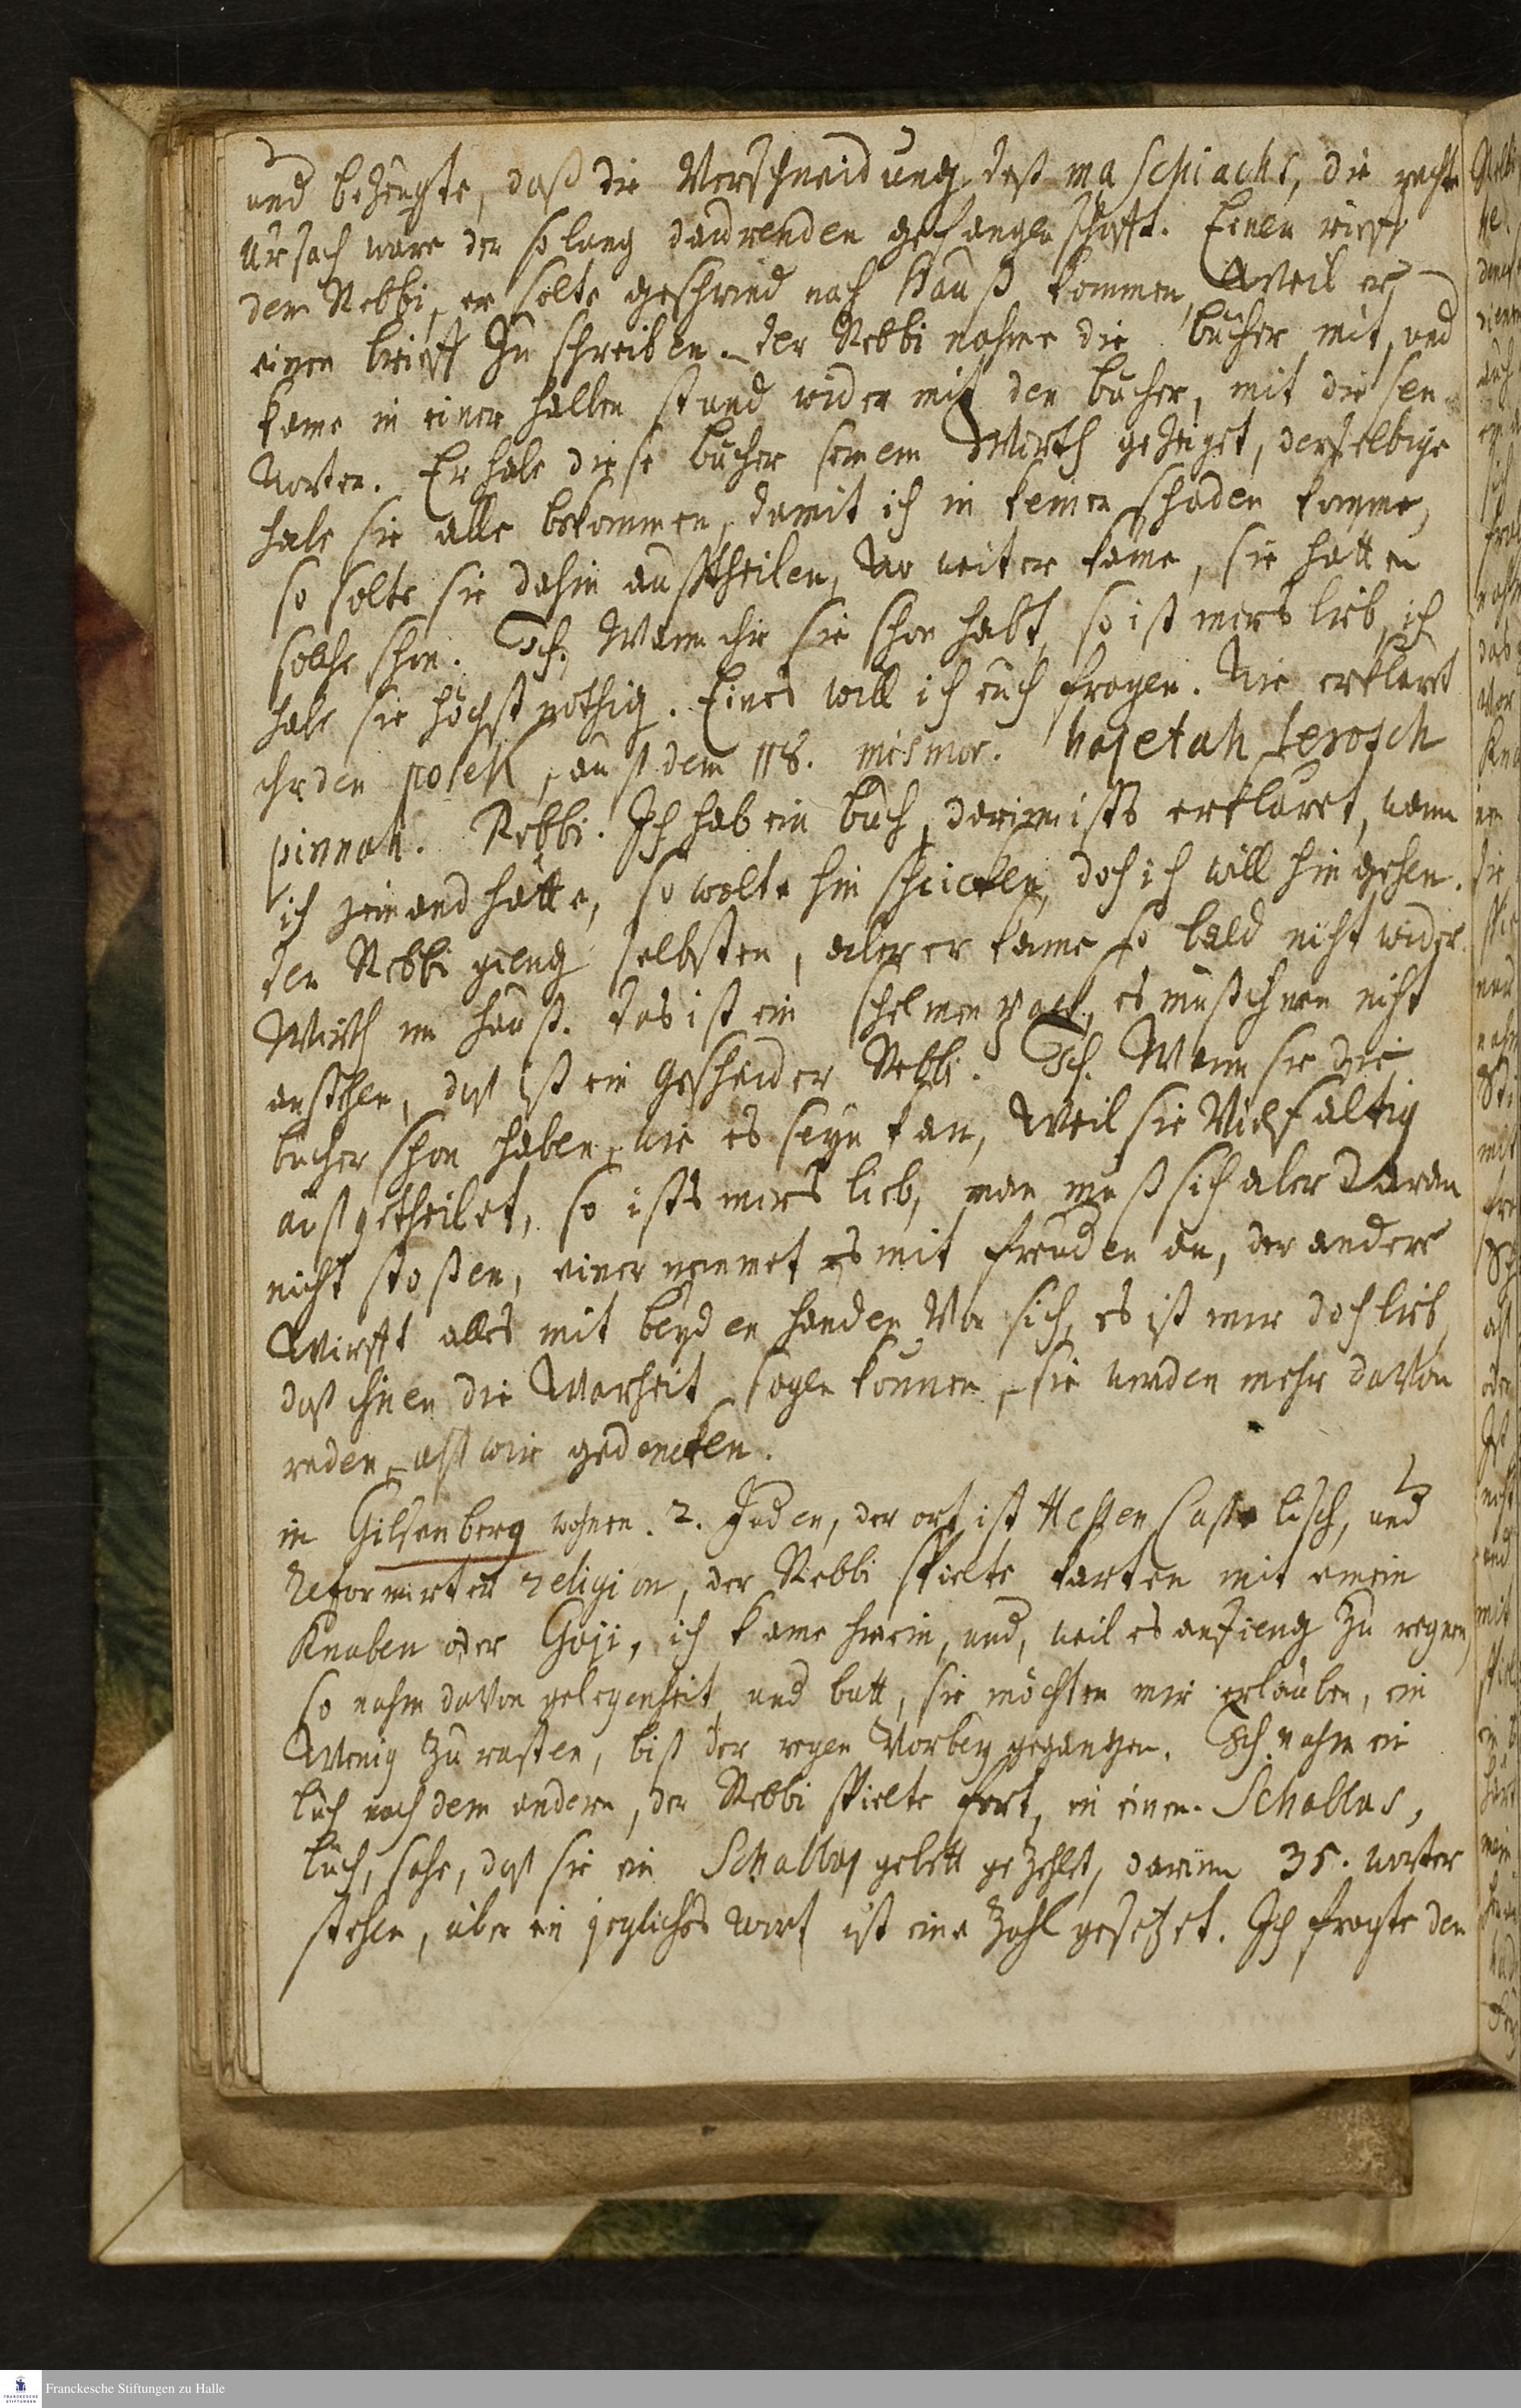 und bezeugte, daß die Verschneidung deß maschiachs, die rechte
Ursach ware der so lang daurenden gefangenschafft. Einer rieff
dem Rebbi, er solte geschwind nach Hauß kommen, Weil er
einen brieff zu schreiben. der Rebbi nahme die bücher mit, und
kame in einer halben stund wider mit den bücher, mit diesen
worten. Er habe diese bücher seinem Wirth gezeiget, derselbige
habe sie alle bekommen, damit ich in keinen schaden komme,
so solte sie dahin außtheilen, wo weiter käme, sie hatten
solche schon. Ich. Wann ihr sie schon habt, so ist mirs lieb, ich
habe sie höchst nöthig. Eines will ich euch fragen. Wie erklärt
ihr den posek, auß dem 118. mismor. hajetah lerosch
pinnah. Rebbi. Ich hab ein buch, darinn ists erkläret, wann
ich jemand hätte, so wolte hin schicken, doch ich will hingehen.
der Rebbi gieng selbsten, aber er kame so bald nicht wider.
Wirth im hauß. das ist ein schelmen pack, es muß ihnen nicht
anstehen, daß ist ein gescheider Rebbi. Ich. Wann sie die
bücher schon haben, wie es seyn kan, Weil sie Vielfältig
außgetheilet, so ists mirs lieb, man muß sich aber daran
nicht stoßen, einer nimmet es mit freuden an, der andere
Wirfft alles mit beyden händen Von sich, es ist mir doch lieb
daß ihnen die Warheit sagen können, sie werden mehr davon
reden, alß wir gedencken.
in Gilsenberg wohnen. 2. Juden, der ort ist Hessen Casselisch, und
Reformirter religion, der Rebbi spielte karten mit einem
Knaben oder Goji, ich kame hinein, und, weil es anfieng zu regnen,
so nahm davon gelegenheit, und batt, sie möchten mir erlauben, ein
Wenig zu rasten, biß der regen Vorbey gegangen. Ich nahm ein
buch nach dem andern, der Rebbi spielte fort, in einem Schabbas,
buch, sahe, daß sie ein Schabbas gebett gezehlet, darinn 35. worter
stehen, über ein jegliches wort ist eine Zahl gesetzet. Ich fragte den
Franckesche Stiftungen zu Halle